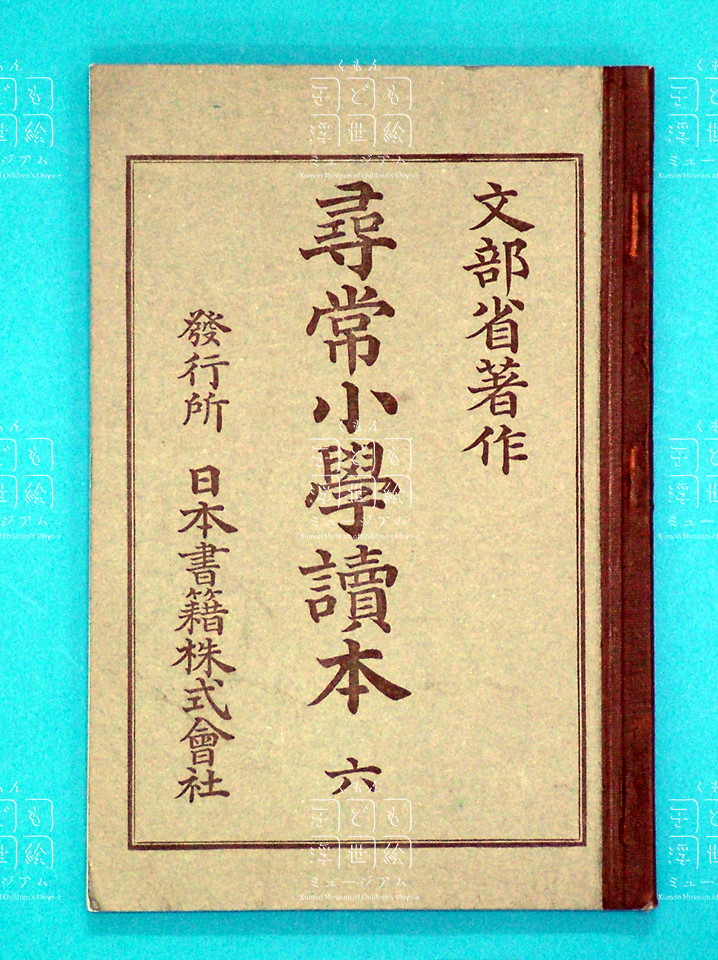 文部省著作
尋常小學讀本 六
發行所 日本書籍株式會社
くもん
子ども
浮世絵
ミュージアム
Kumon Museum of Children's Ukiyo-e